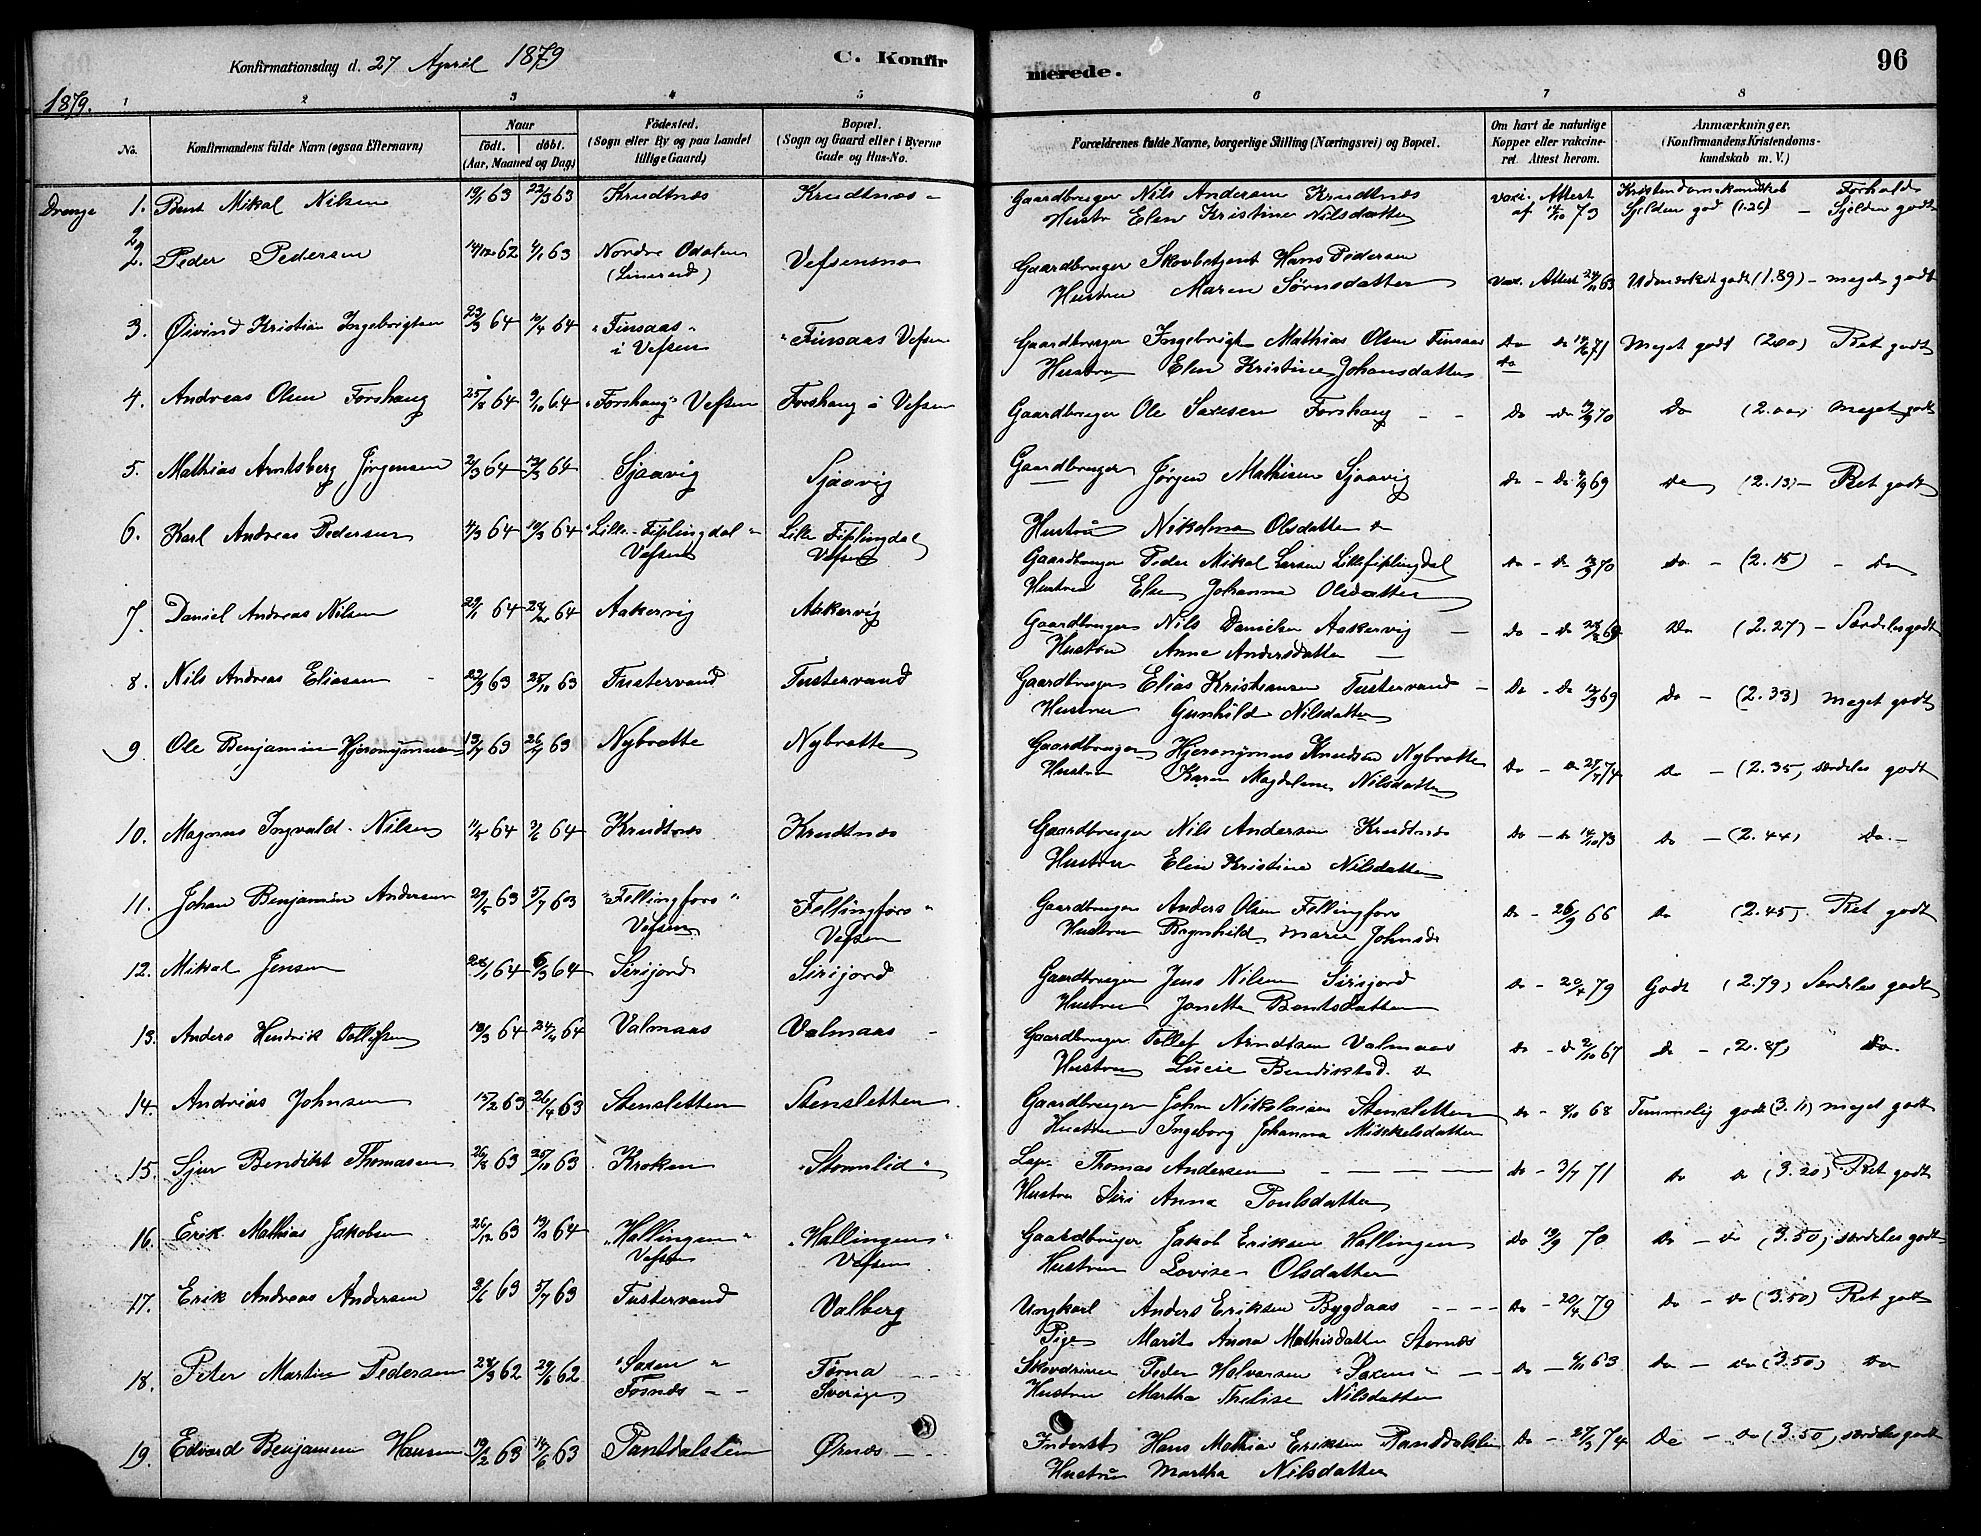 Konfirmationsdag d. 27 April 1879
C. Konfir
merede.
96
1879.
1 2 3 4 5 6 7 8
No.
Konfirmandens fulde Navn (ogsaa Efternavn)
Naar
født. døbt.
(Aar, Maaned og Dag)
Fødested.
(Sogn eller By og paa Landet
tillige Gaard)
Bopæl.
(Sogn og Gaard eller i Byerne
Gade og Hus-No.
Forældrenes fulde Navne, borgerlige Stilling (Næringsvei) og Bopæl.
Om havt de naturlige
Kopper eller vakcine-
ret. Attest herom.
Anmærkninger.
(Konfirmandens Kristendoms-
kundskab m. V.)
Drenge 1. Bent Mikal Nilsen 22/3 63 Krudtnæs Krudtnæs - Gaardbruger Nils Andersen Krudtnæs vaxi. Attest Kristendomskundskab Forholds
Hustr Elen Kristine Nilsdatter af 14/10 73 Sjelden god (1.26) - Sjelden godt
2. Peder Pedersen 14/12 62 4/1 63 Nordre Odalen Vefsensmo Gaardbruger Skovbetjent Hans Pedersen
Hustru Maren Sørnsdatter vax. Attest 63 Udmærket godt (1.89) - meget godt
3. Øivind Kristian Ingebrigtsen 22/3 64 10/4 64 "Finsaas" "Finsaas Vefsen Gaardbruger Ingebrigt Mathias Olsen Finsaas Do 71 Meget godt (2.00) Ret godt
i Vefsen Hustru Elen Kristine Johansdatter do
4. Andreas Olsen Forshaug 25/8 64 9/10 64 "Forshaug" Vefsen Forshaug i Vefsen Gaardbruger Ole Saxesen Forshaug - - Do - do 70 Do (2.00) Meget godt
5. Mathias Arntsberg Jørgensen 2/3 64 64 Sjaavig Sjaavig Gaardbruger Jørgen Mathisen Sjaavig Do - Do 69 Do (2.13) - Ret godt
Hustru Nikolina Olsdatter
6. Karl Andreas Pedersen 4/3 64 64 "Lille-Fiplingdal" Lille Fiplingdal
Vefsen Vefsen
Gaardbruger Peder Mikal Larsen Lillefiplingdal Do - Do 70 Do - (2.15) - Do
Hustru Else Johanna Olsdatter
7. Daniel Andreas Nilsen 29/1 64 64 Aakervig Aakervig Gaardbruger Nils Danielsen Aakervig - Do - Do 69 Do (2.27) - Særdeles godt
Hustru Anne Andersdatter -
8. Nils Andreas Eliasen 63 25/10 63 Tustervand Tustervand Gaardbruger Elias Kristiansen Tustervand - Do - Do 69 Do - (2.33) Meget godt
Hustru Gunhild Nilsdatter
9. Ole Benjamin Hjeronymussen 63 26/7 63 Nybrotte Nybrotte Gaardbruger Hjeronymus Knudsen Nybrotte
Hustru Karen Magdelene Nilsdatter Do - 74 Do - (2.35) særdeles godt
10. Magnus Ingvald Nilsen 11/5 64 64 Krudtnæs Krudtnæs Gaardbruger Nils Andersen Krudtnæs Do - do 14/10 73 Do - (2.44) Do -
Hustru Elen Kristine Nilsdatter
11. Johan Benjamin Andersen 29/5 63 5/7 63 "Fellingfors" "Fellingfors" Gaardbruger Anders Olsen Fellingfors Do - 26/9 66 Do (2.45) Ret godt
Vefsen Vefsen Hustru Brynhild Marie Johnsd
12. Mikal Jensen 64 6/3 64 Sirijord Sirijord Gaardbruger Jens Nilsen Sirijord Do - 20/4 79 Godt (2.79) Særdeles godt
Hustru Jonetta Bentsdatter
13. Anders Hendrik Tollefsen 64 64 Valmaas Valmaas - Gaardbruger Tollef Arndtsen Valmaas Do - do 2/10 67 Do - (2.87) Do.
Hustru Lucie Bendiktsd.
14. Andreas Johnsen 15/2 63 26/4 63 Stensletten Stensletten Gaardbruger John Nikolaisen Stensletten Do - 68 Temmelig godt (3.11) meget godt
Hustru Ingeborg Johanna Mikkelsdatter
15. Sjur Bendikt Thomasen 26/8 63 25/10 63 Kroken "Stornlid" Lap. Thomas Andersen - - - Do - 3/7 71 Do Do (3.20) Ret godt
Hustru Siri Anna Poulsdatter
16. Erik Mathias Jakobsen 26/12 63 64 "Hallingen" "Hallingen" Gaardbruger Jakob Eriksen Hallingen Do 13/9 70 Do - Do (3.50) særdeles godt
Vefsen Vefsen Hustru Lovise Olsdatter
17. Erik Andreas Andersen 63 5/7 63 Tustervand Valberg Ungkarl Anders Eriksen Bygdaas - - - Do - 20/4 79 Do - Do (3.50) Ret godt
Pige Marit Anna Mathisdatter Stornæs
18. Peter Martin Pedersen 62 29/6 62 "Saxen" Tørna Skovdriver Peder Halvorsen "Saxen" - - Do - 63 Do - Do (3.50) Do
Fosnæs - - Sverige Hustru Martha Thelise Nilsdatter
19. Edvard Benjamin Hansen 63 14/6 63 Pantdalslien Ørnæs - Inderst Hans Mathias Eriksen Panddalslien Do - 27/3 74 Do - Do (3.50) særdeles godt
Hustru Martha Nilsdatter